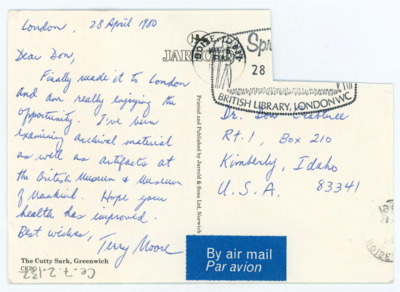 London, 28 April 1980
Dear Don,
Finally made it to London
and am really enjoying the
opportunity. I've been
examining archival material
as well as artifacts at
the British Museum & Museum
of Mankind. Hope your
health has improved.
Best wishes,
Terry Moore
The Cutty Sark, Greenwich
Ce.7.2.132
JARROLD
Printed and Published by Jarrold & Sons Ltd, Norwich
BOISE, ID
28
BRITISH LIBRARY, LONDON WC
Dr. Don Crabtree
Rt. 1, Box 210
Kimberly, Idaho
U.S.A. 83341
By air mail
Par avion
BOISE